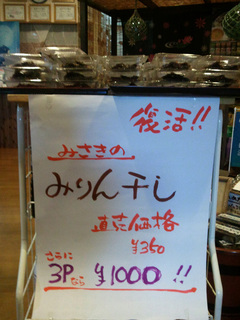 復活!!
みさきの
みりん干し
直売価格
¥350
さらに
3Pなら ¥1000 !!